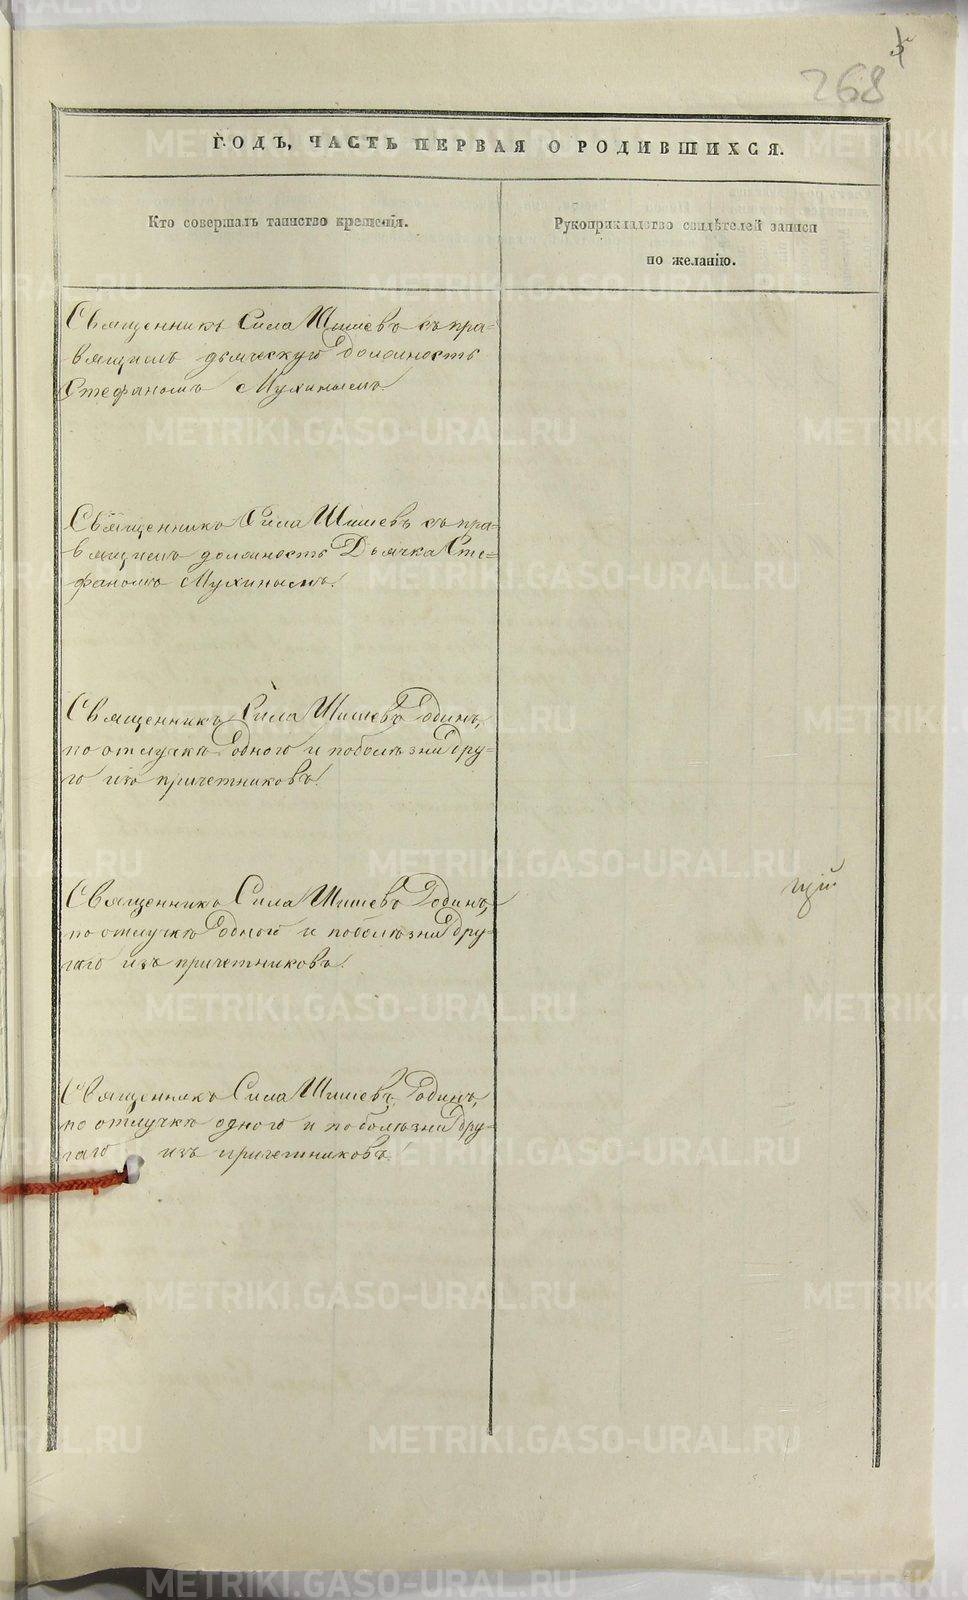 268
ГОДЪ, ЧАСТЬ ПЕРВАЯ О РОДИВШИХСЯ.
Кто совершалъ таинство крещенія.
Рукоприкладство свидѣтелей записи
по желанію.
Священникъ Сила Шишевъ съ пра-
вящимъ дьяческую должность
Стефаномъ Мухинымъ.
Священникъ Сила Шишевъ съ пра-
вящимъ должность Дьячка Сте-
фаномъ Мухинымъ.
Священникъ Сила Шишевъ Одинъ,
по отлучкѣ Одного и по болѣзни Дру-
го изъ причетниковъ.
Священникъ Сила Шишевъ Одинъ,
по отлучкѣ Одного и по болѣзни Дру-
гаго изъ причетниковъ.
Священникъ Сила Шишевъ Одинъ,
по отлучкѣ одного и по болѣзни Дру-
гаго изъ причетниковъ.
щій
METRIKI.GASO-URAL.RU